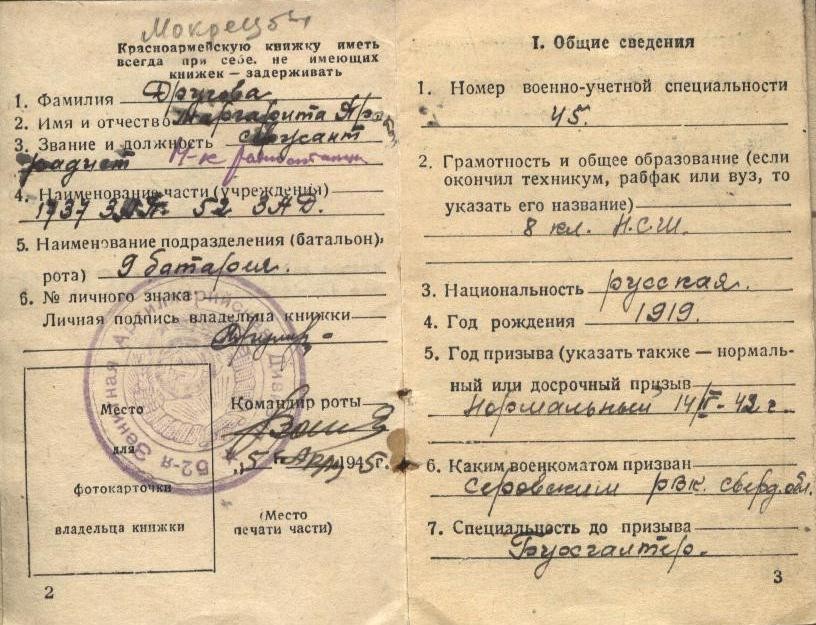 Красноармейскую книжку иметь
всегда при себе. не имеющих
книжек — задерживать
1. Фамилия Другова
2. Имя и отчество Маргарита
3. Звание и должность сержант
радист М-к радиостанции
4. Наименование части (учреждения)
1937 ЗАП. 52 ЗАД.
5. Наименование подразделения (батальон,
рота) 9 батарея.
6. № личного знака
Личная подпись владельца книжки
52-я Зенитная Артиллерийская Див
Командир роты
Место
для
фотокарточки
владельца книжки
„5 “ Апр 1945 г.
(Место
печати части)
2
I. Общие сведения
1. Номер военно-учетной специальности
45.
2. Грамотность и общее образование (если
окончил техникум, рабфак или вуз, то
указать его название)
8 кл. Н.С.Ш.
3. Национальность русская.
4. Год рождения 1919.
5. Год призыва (указать также — нормаль-
ный или досрочный призыв
Нормальный 14/II-42 г.
6. Каким военкоматом призван
Серовским РВК. Сверд. обл.
7. Специальность до призыва
Бухгалтер.
3